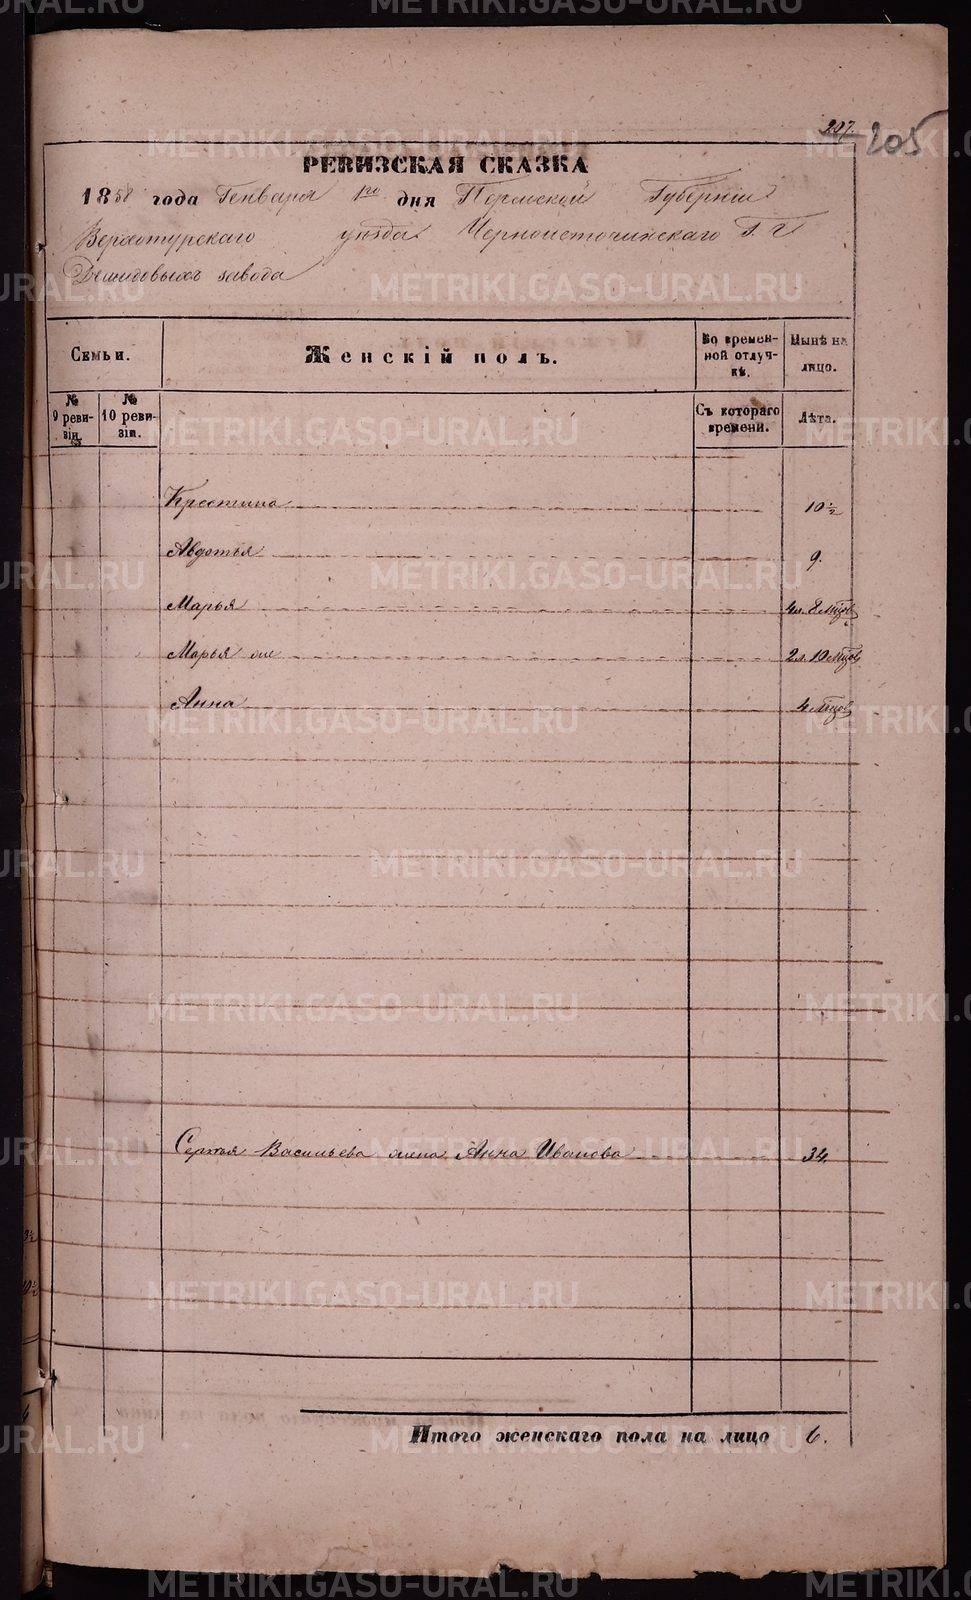 207.
205
РЕВИЗСКАЯ СКАЗКА
1858 года Генваря 1го дня Пермской Губерніи
Верхотурскаго уѣзда Черноисточинскаго Г. г.
Демидовыхъ завода
Семьи.
Женскій полъ.
Во времен-
ной отлуч-
кѣ.
Нынѣ на
лицо.
№
9 реви-
зіи.
№
10 реви-
зіи.
Съ котораго
времени.
Лѣта.
Крестина 10½
Авдотья 9.
Марья 4 л. 8 мѣсцов
Марья же 2 л. 10 мѣсцов
Анна 4 мѣсцов
Сергѣя Васильева жена Анна Иванова 34.
Итого женскаго пола на лицо 6.
METRIKI.GASO-URAL.RU